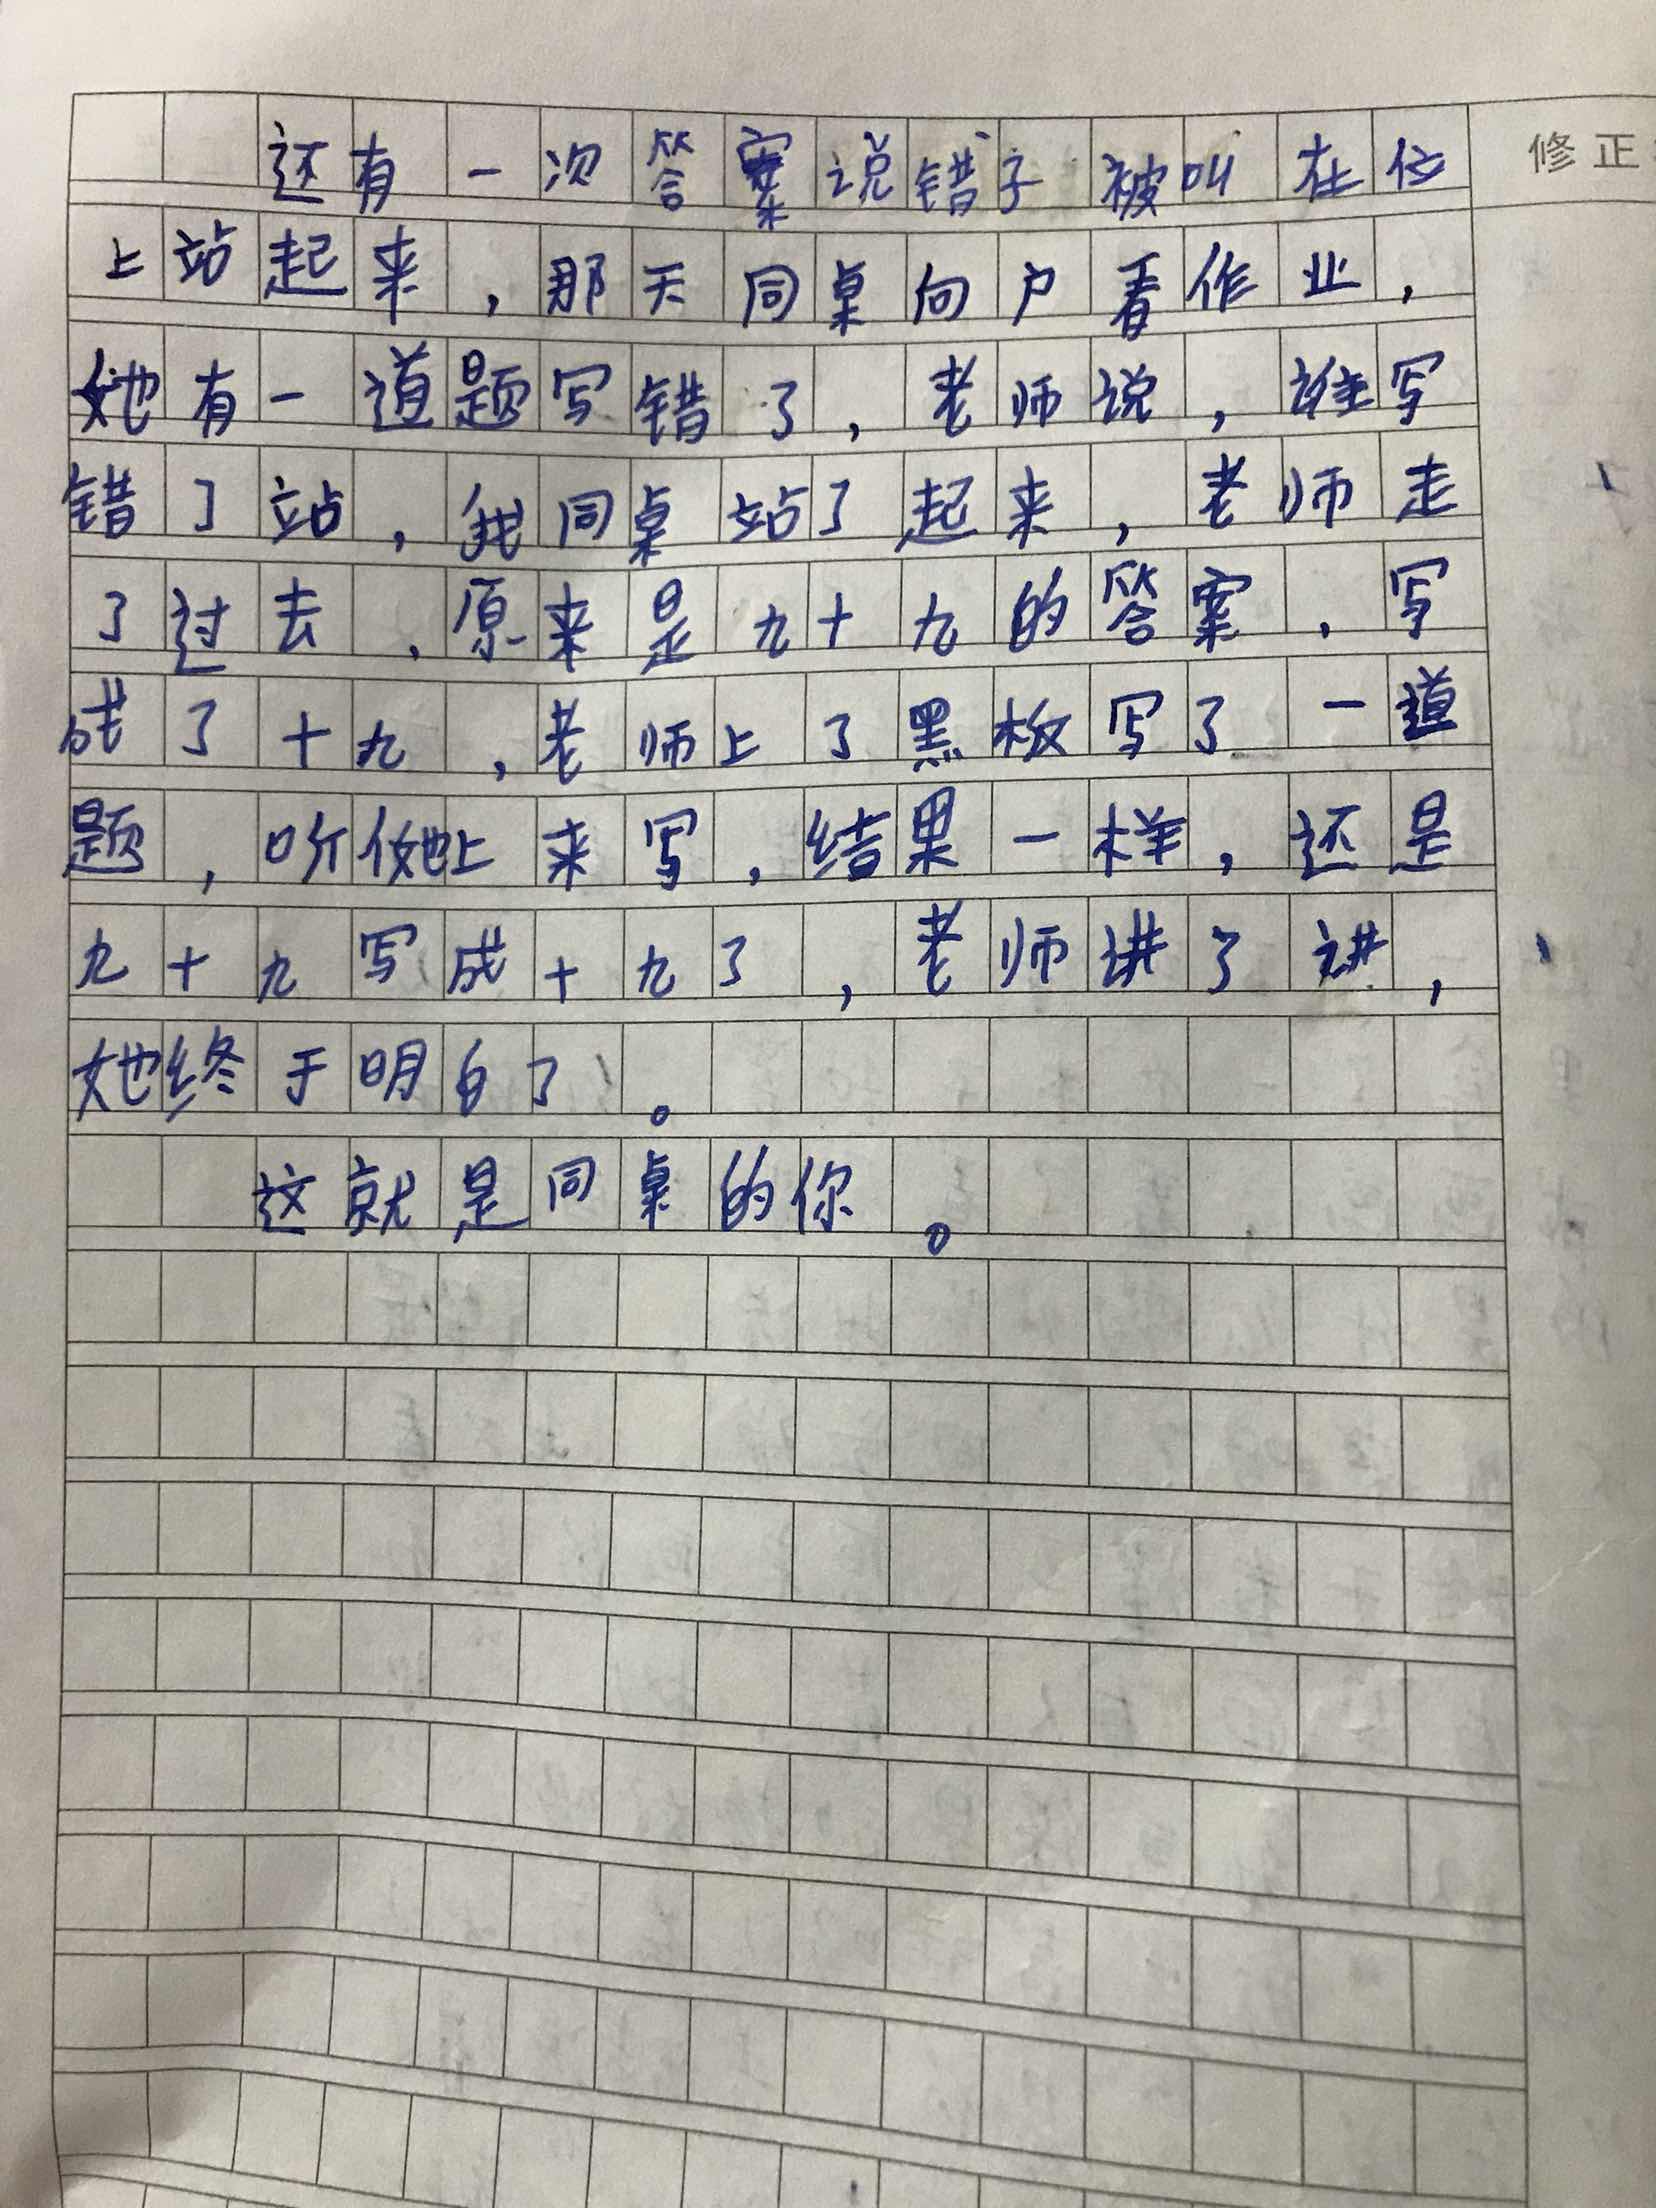 还有一次答案说错了被叫在位
修正
上站起来，那天同桌向户看作业，
她有一道题写错了，老师说，谁写
错了站，我同桌站了起来，老师走
了过去，原来是九十九的答案，写
成了十九，老师上了黑板写了一道
题，她上来写，结果一样，还是
九十九写成十九了，老师讲了讲，
她终于明白了。
这就是同桌的你。